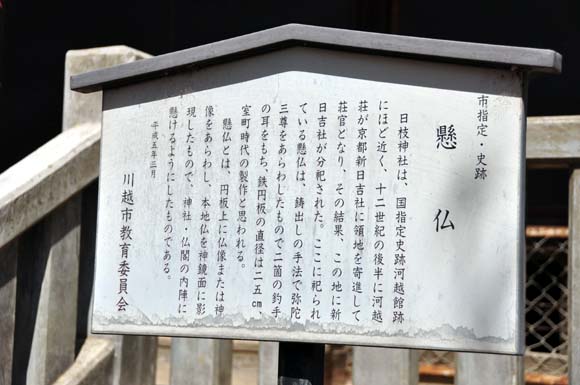 市指定・史跡
懸仏
日枝神社は、国指定史跡河越館跡
にほど近く、十二世紀の後半に河越
荘が京都新日吉社に領地を寄進して
荘官となり、その結果、この地に新
日吉社が分祀された。ここに祀られ
ている懸仏は、鋳出しの手法で弥陀
三尊をあらわしたもので二箇の釣手
の耳をもち、鉄円板の直径は二五cm、
室町時代の製作と思われる。
懸仏とは、円板上に仏像または神
像をあらわし、本地仏を神鏡面に影
現したもので、神社・仏閣の内陣に
懸けるようにしたものである。
平成五年三月
川越市教育委員会